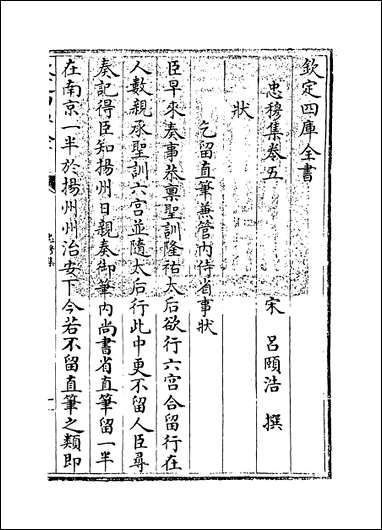 欽定四庫全書
忠穆集卷五
宋　呂頤浩　撰
狀
乞留直筆兼管内侍省事狀
臣早來奏事恭稟聖訓隆祐太后欲行六宫合留行在
人數親承聖訓六宫並隨太后行此中更不留人臣尋
奏記得臣知揚州日親奏御筆内尚書省直筆留一半
在南京一半於揚州州治安下今若不留直筆之類即